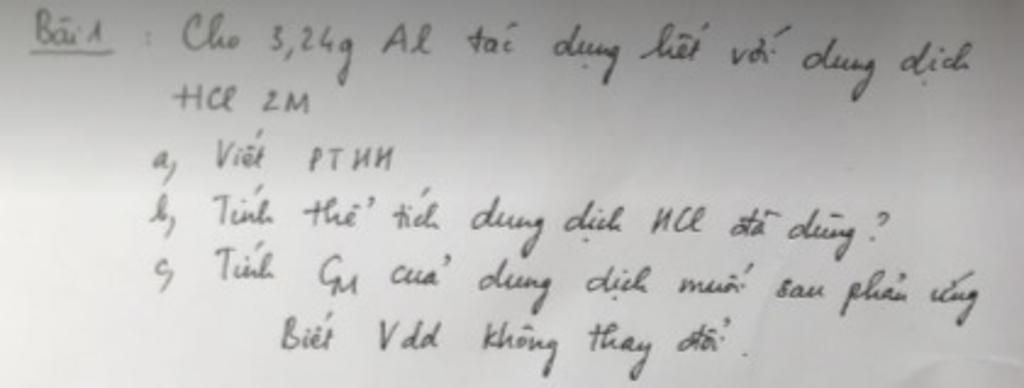 Bài 1 : Cho 3,24g Al tác dụng hết với dung dịch
HCl 2M
a, Viết PTHH
b, Tính thể tích dung dịch HCl đã dùng?
c, Tính CM của dung dịch muối sau phản ứng
Biết Vdd không thay đổi.